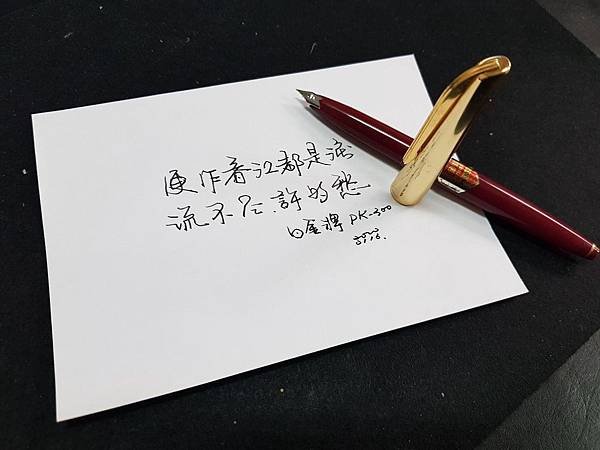 便作春江都是淚
流不尽.許多愁
白金牌 PK-300